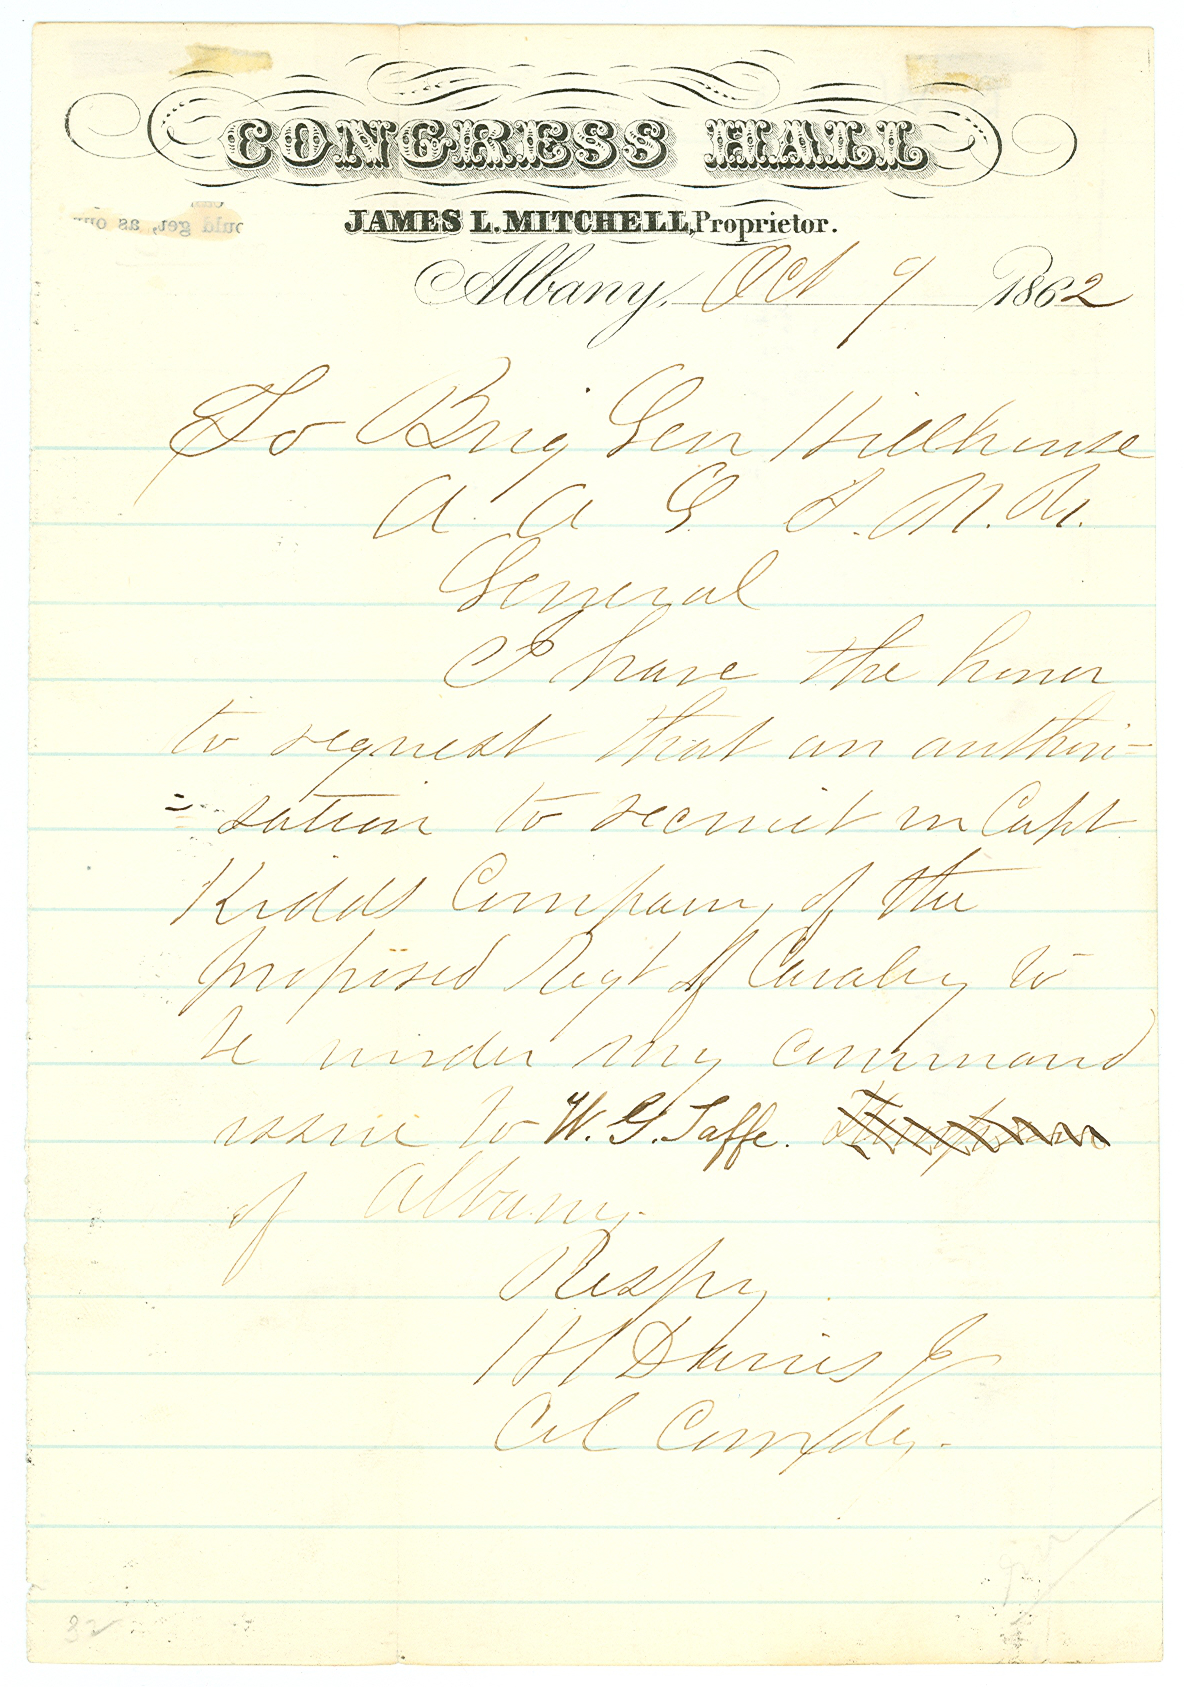 CONGRESS HALL
JAMES L. MITCHELL, Proprietor.
Albany, Oct 9 1862
To Brig Gen Hillhouse
A. A. G. S. N. Y.
General
I have the honor
to request that an authori-
=sation to recruit in Capt
Kidds Company of the
proposed Regt of Cavalry to
be under my command
issue to W. G. Taffe.
of Albany.
Respy
H Davies Jr
Col Comdg.
32